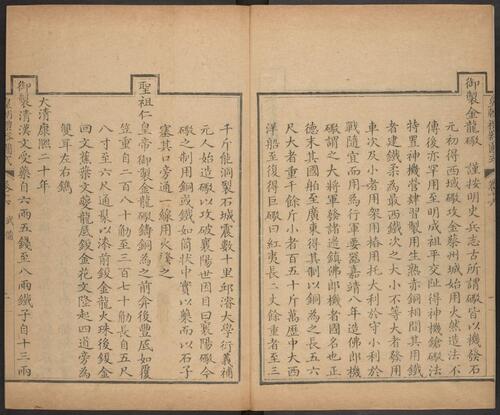 御製金龍礮 謹按明史兵志古所謂礮皆以機發石
元初得西域礮攻金蔡州城始用火然造法不
傳後亦罕用至明成祖平交阯得神機鎗礮法
特置神機營肄習製用生熟赤銅相間其用鐵
者建鐵柔為最西鐵次之大小不等大者發用
車次及小者用架用樁用托大利於守小利於
戰隨宜而用為行軍要器嘉靖八年造佛郎機
礮謂之大將軍發諸邉鎮佛郎機者國名也正
德末其國舶至廣東得其制以銅為之長五六
尺大者重千餘斤小者百五十斤萬歷中大西
洋船至復得巨礮曰紅夷長二丈餘重者至三
千斤能洞裂石城震數十里邱濬大學衍義補
元人始造礮以攻破襄陽世因目曰襄陽礮今
礮之制用銅或鐵如筒狀中實以藥而以石子
塞其口旁通一線用火發之
聖祖仁皇帝御製金龍礮鑄銅為之前弇後豐底如覆
笠重自二百八十觔至三百七十觔長自五尺
八寸至六尺通髹以漆前鋄金龍火珠後鋄金
囬文蕉葉文夔龍底鋄金花文隆起四道旁為
雙耳左右鐫
大清康熙二十年
御製清漢文受藥自六兩五錢至八兩鐵子自十三兩
武備